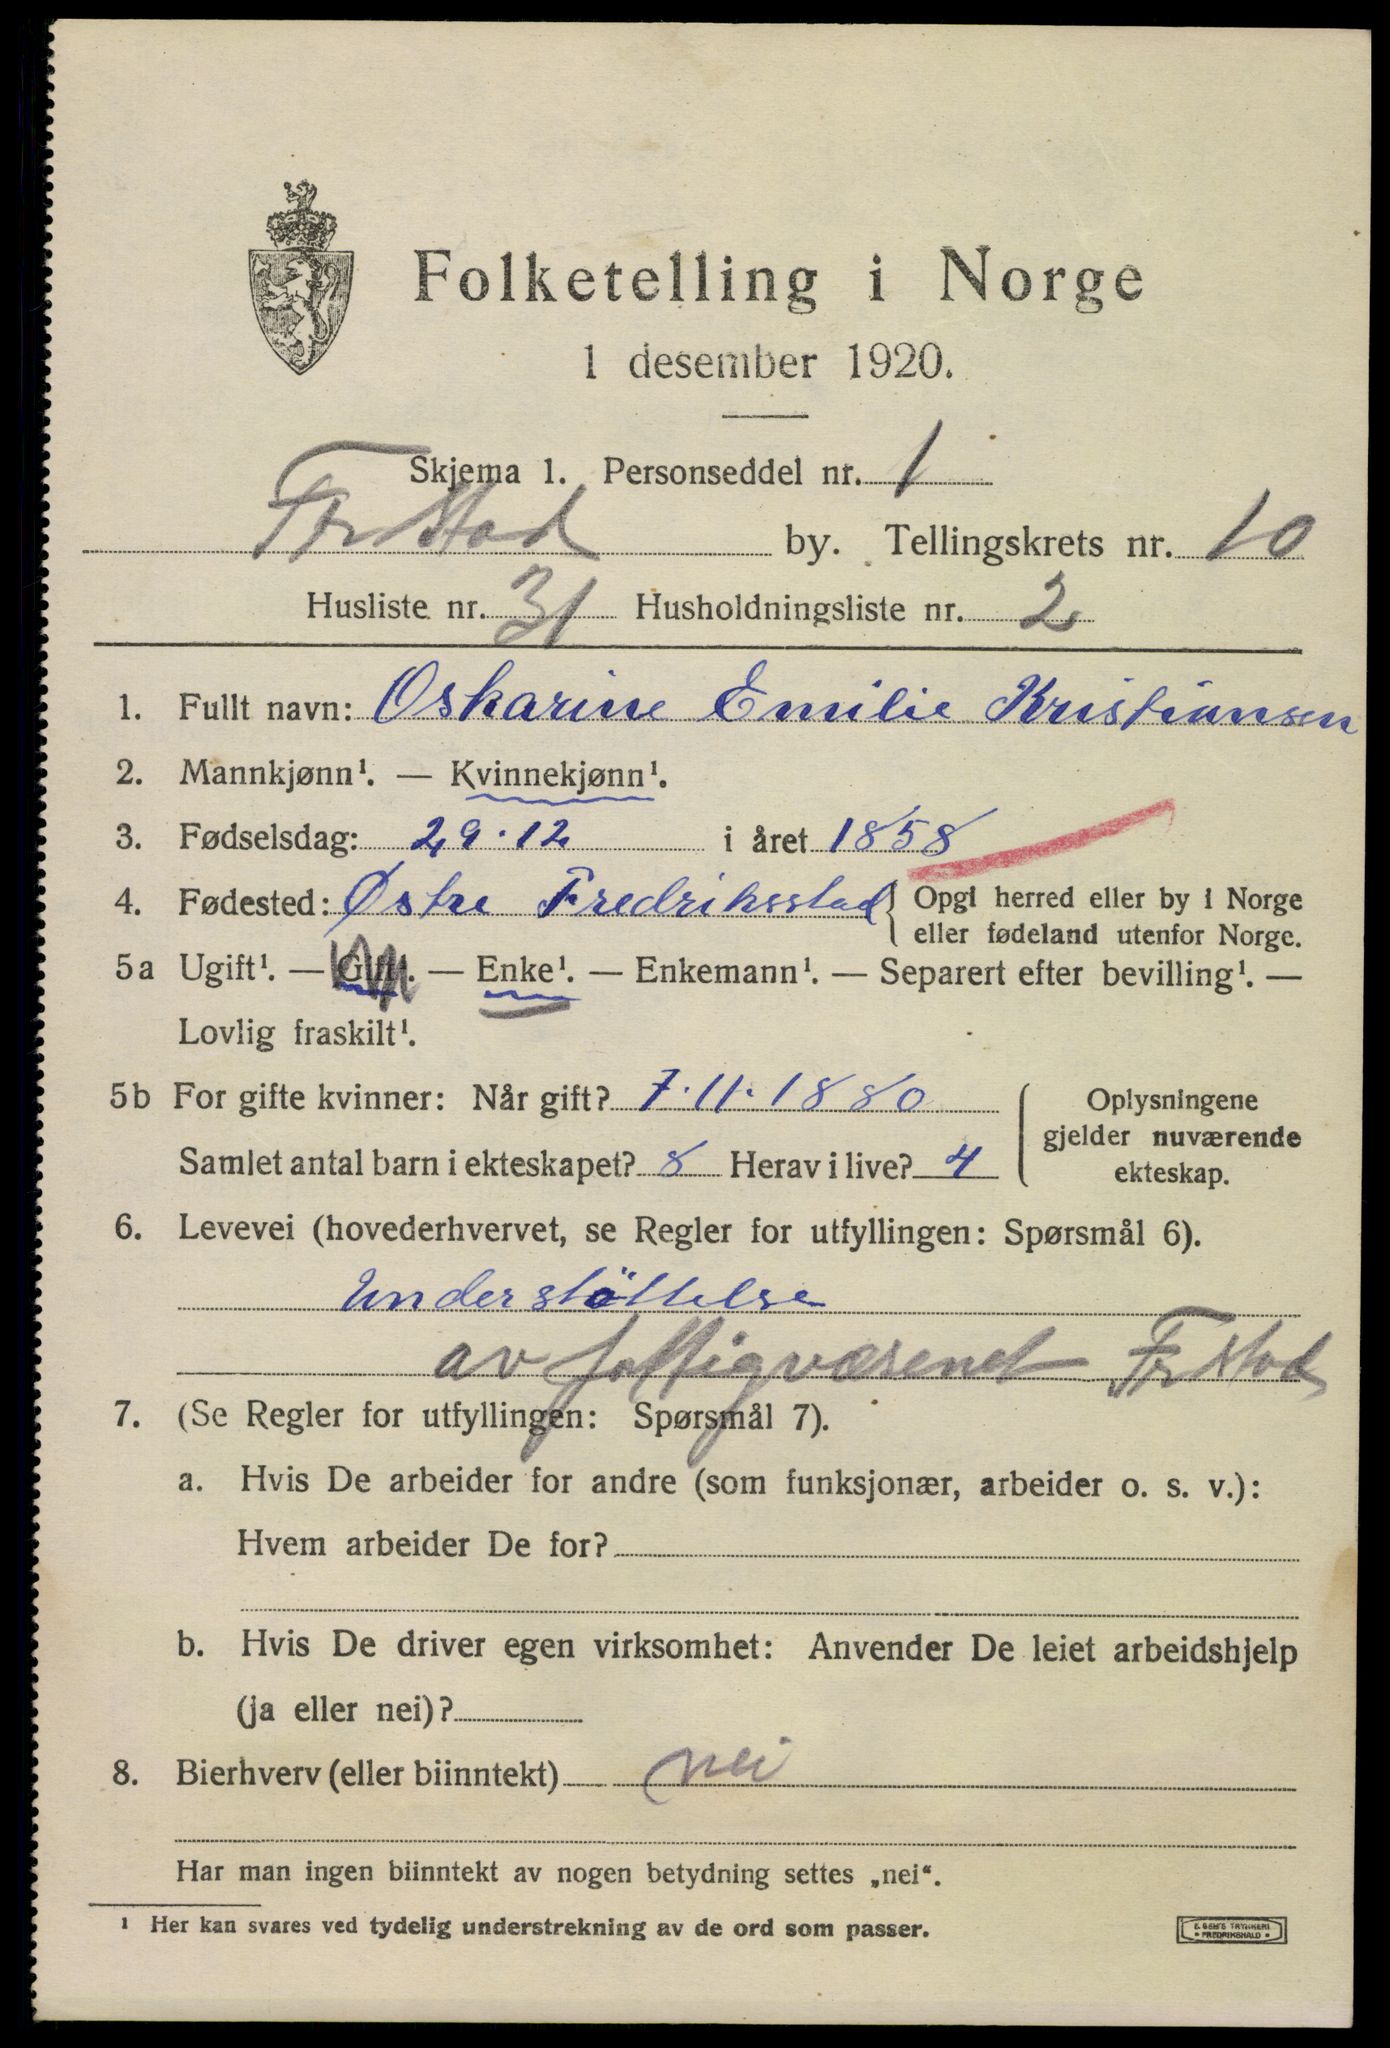 Folketelling i Norge
1 desember 1920.
Skjema 1. Personseddel nr. 1
Frstad by. Tellingskrets nr. 10
Husliste nr. 31 Husholdningsliste nr. 2
1. Fullt navn: Oskarine Emilie Kristiansen
2. Mannkjønn¹. — Kvinnekjønn¹.
3. Fødselsdag: 29.12 i året 1858
4. Fødested: Østre Fredriksstad { Opgi herred eller by i Norge
eller fødeland utenfor Norge.
5a Ugift¹. — Gift¹. — Enke¹. — Enkemann¹. — Separert efter bevilling¹. —
Lovlig fraskilt¹.
5b For gifte kvinner: Når gift? 7.11.1880
Samlet antal barn i ekteskapet? 8 Herav i live? 4
Oplysningene
gjelder nuværende
ekteskap.
6. Levevei (hovederhvervet, se Regler for utfyllingen: Spørsmål 6).
Understöttelse
av fattigvæsenet Frstad
7. (Se Regler for utfyllingen: Spørsmål 7).
a. Hvis De arbeider for andre (som funksjonær, arbeider o. s. v.):
Hvem arbeider De for?
b. Hvis De driver egen virksomhet: Anvender De leiet arbeidshjelp
(ja eller nei)?
8. Bierhverv (eller biinntekt) nei
Har man ingen biinntekt av nogen betydning settes „nei“.
¹ Her kan svares ved tydelig understrekning av de ord som passer.
TRYKKERI
• FREDRIKSHALD •